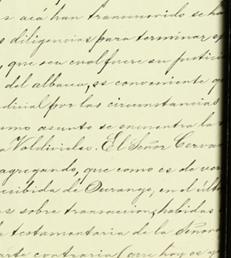 s acá han transcurrido se ha
s diligencias para terminar, s
que sea cual fuere su partic
del albacea, es conveniente q
dicial por las circunstancias
mo asunto se encuentra la
a Valdivielso. El Señor Cervan
agregando, que como es de ver
ecibida de Durango, en el últ
s sobre transaccion, habidas
a testamentaria de la Señora
arte contraria (que hoy es y